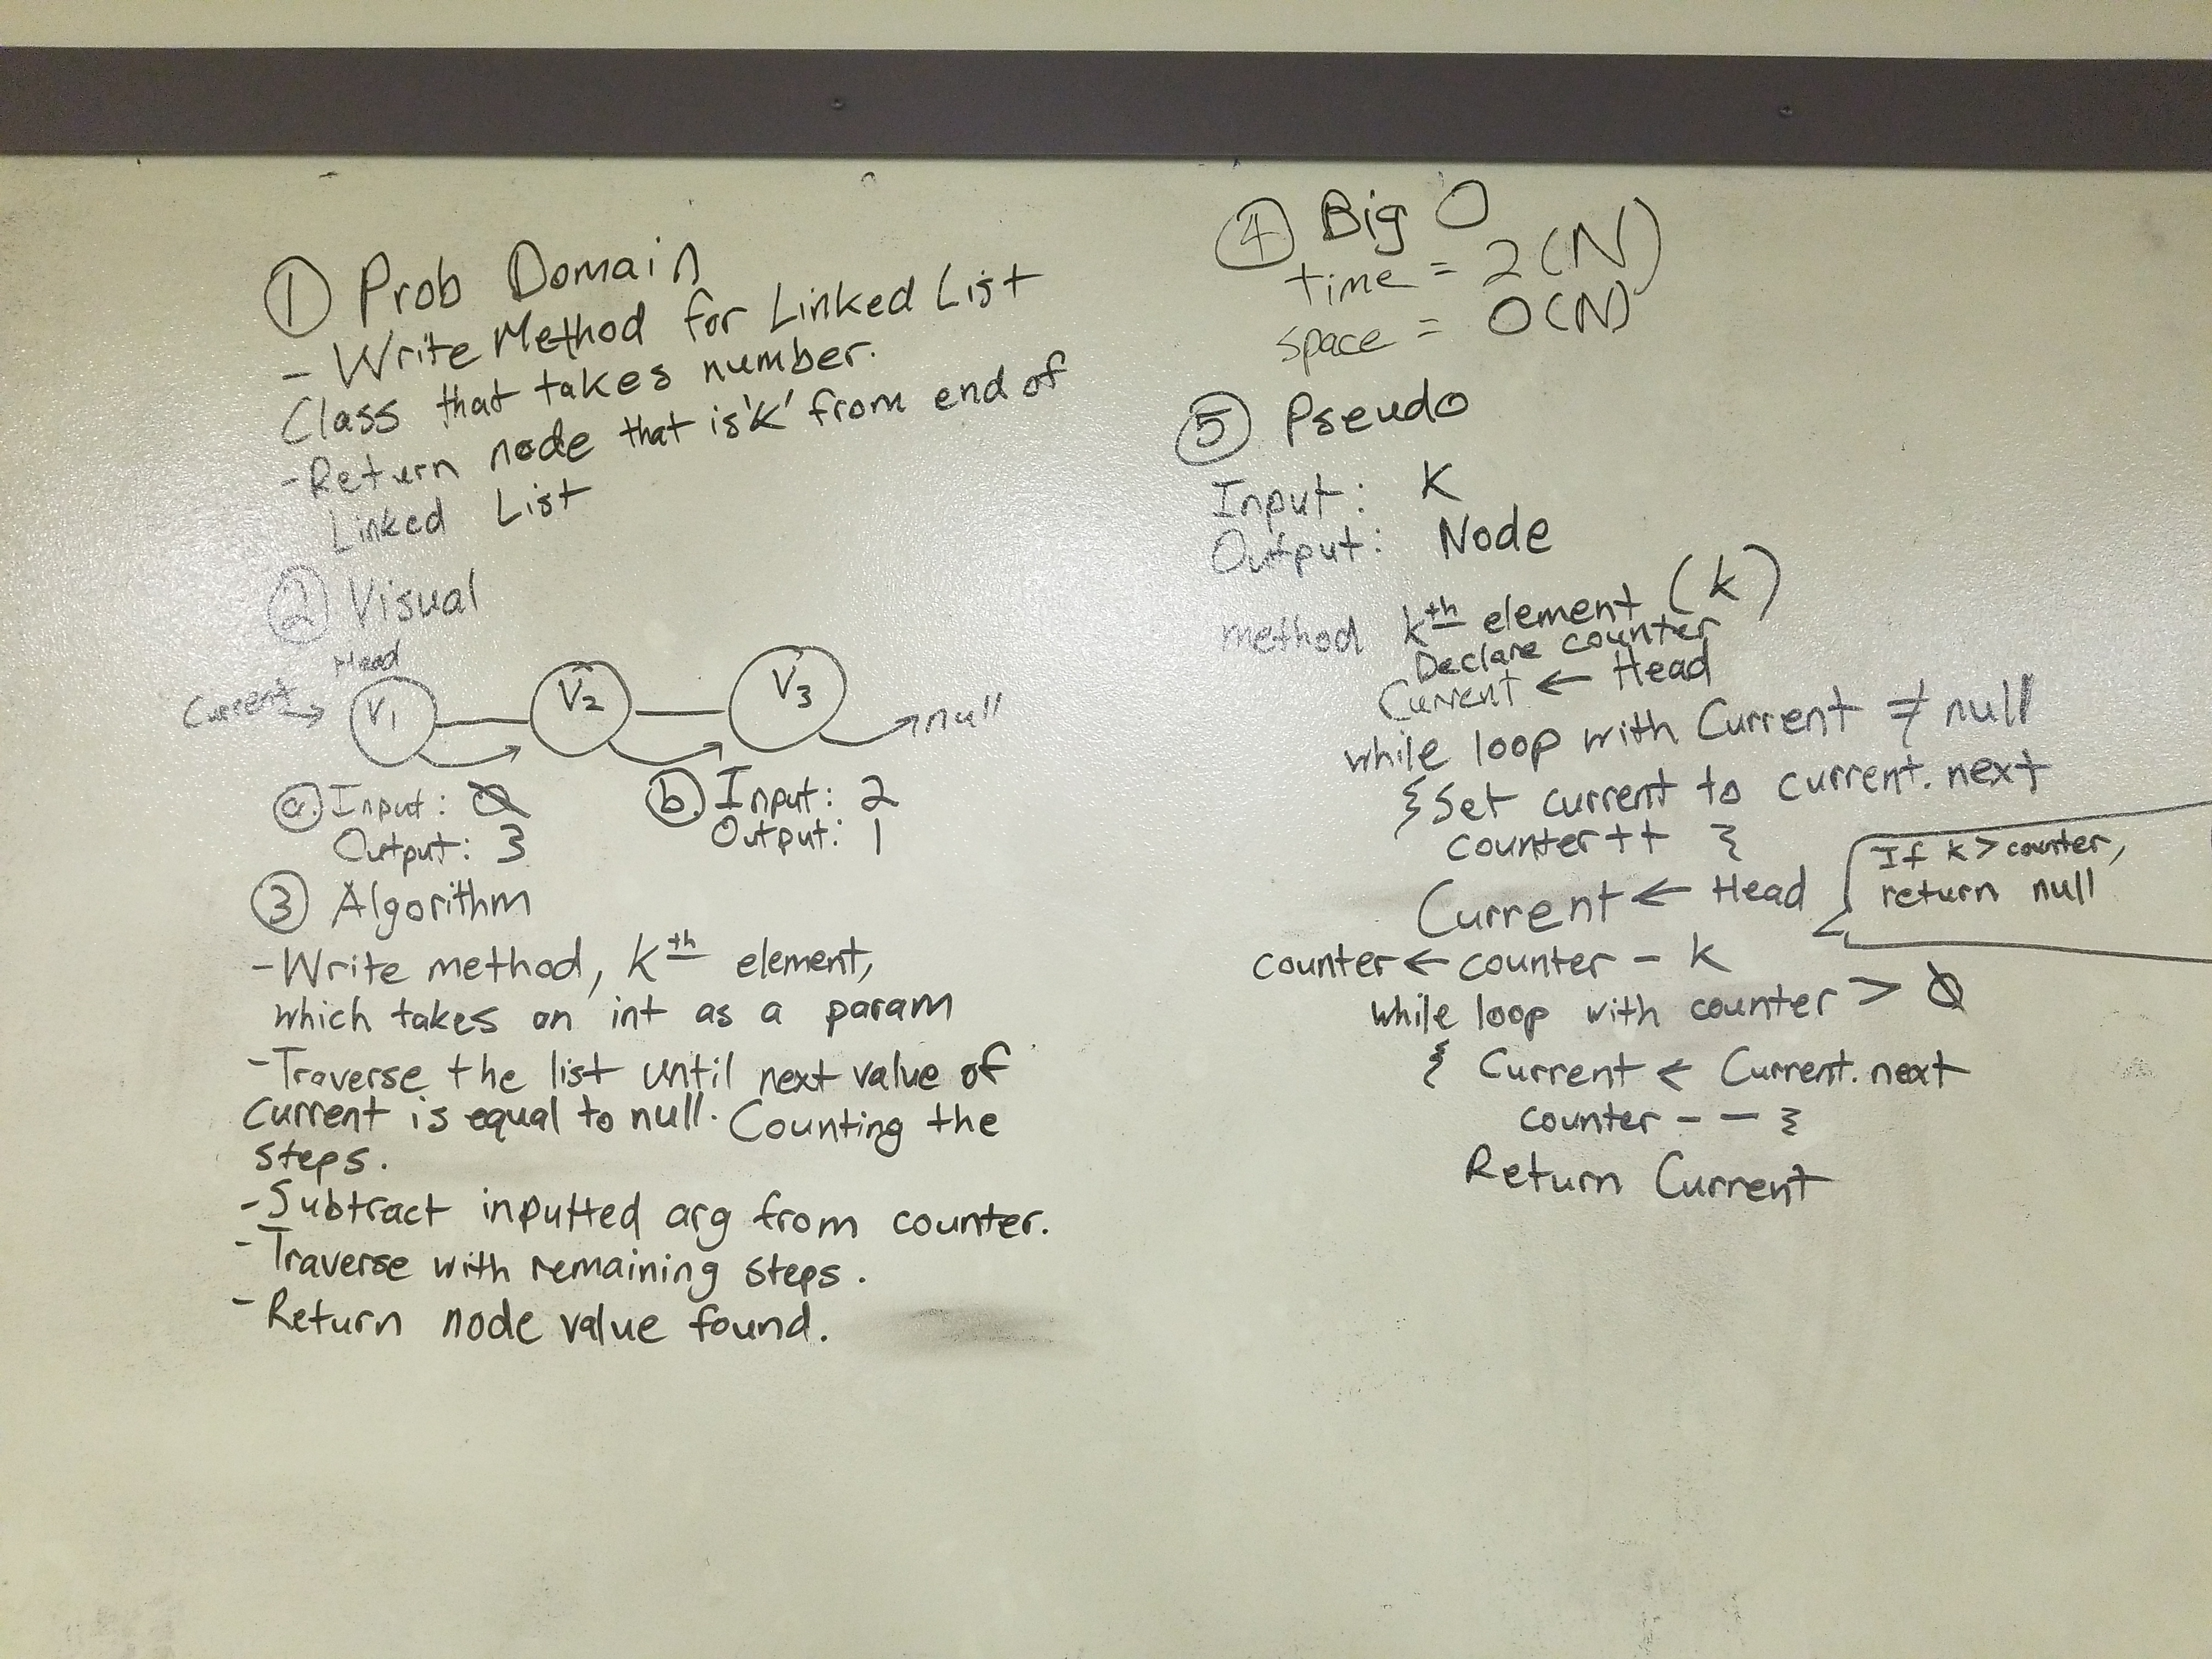 ① Prob Domain
- Write Method for Linked List
Class that takes number.
- Return node that is 'k' from end of
Linked List
② Visual
Head
Current → V1 V2 V3 → null
ⓐ Input: 0
Output: 3
ⓑ Input: 2
Output: 1
③ Algorithm
- Write method, kth element,
which takes an int as a param
- Traverse the list until next value of
current is equal to null. Counting the
steps.
- Subtract inputted arg from counter.
- Traverse with remaining steps.
- Return node value found.
④ Big O
time = 2(N)
space = O(N)
⑤ Pseudo
Input: K
Output: Node
method kth element (k)
Declare counter
Current ← Head
while loop with Current ≠ null
{ Set current to current.next
counter++ }
Current ← Head
If k > counter,
return null
counter ← counter - k
while loop with counter > 0
{ Current ← Current.next
counter -- }
Return Current